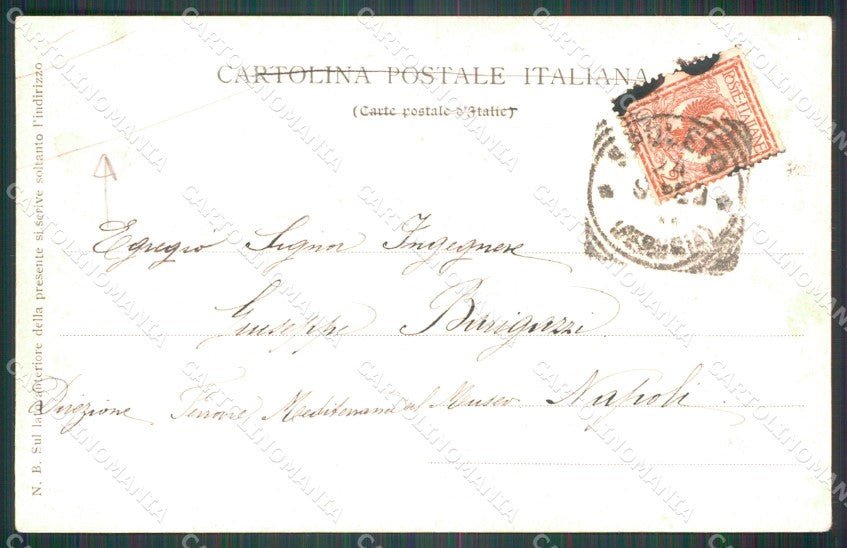 CARTOLINA POSTALE ITALIANA
(Carte postale d'Italie)
POSTE·ITALIANE
SPOLETO
(PERUGIA)
Egregio Signor Ingegnere
Giuseppe Barigazzi
Direzione Ferrovie Mediterranea al Museo Napoli
N. B. Sul lato anteriore della presente si scrive soltanto l'indirizzo
CARTOLINOMANIA